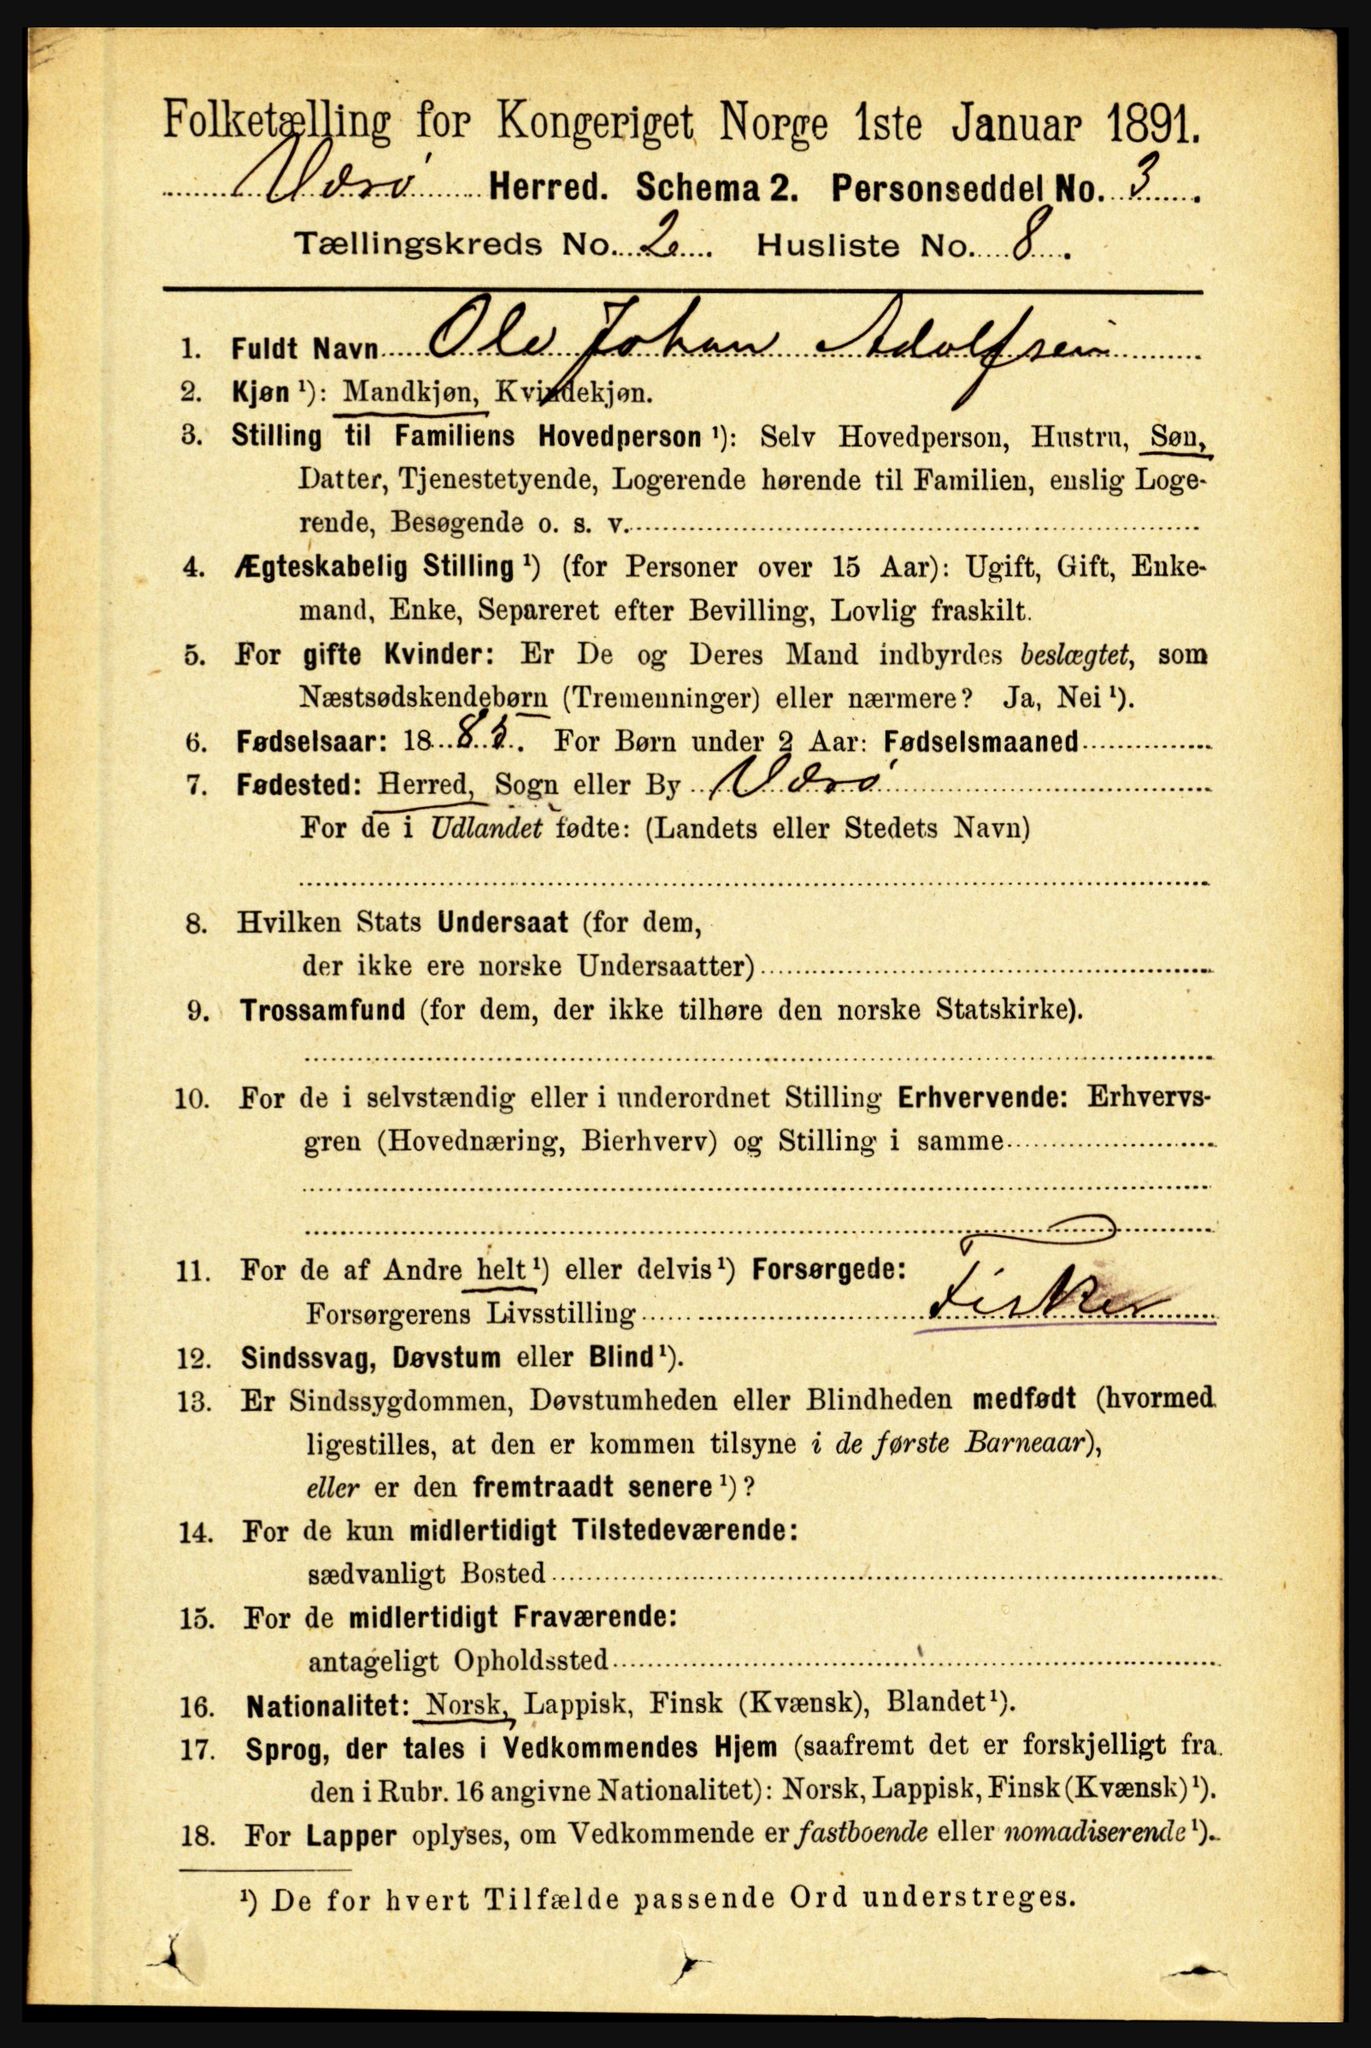 Folketælling for Kongeriget Norge 1ste Januar 1891.
Værø Herred. Schema 2. Personseddel No. 3.
Tællingskreds No. 2. Husliste No. 8.
1. Fuldt Navn Ole Johan Adolfsen
2. Kjøn ¹): Mandkjøn, Kvindekjøn.
3. Stilling til Familiens Hovedperson ¹): Selv Hovedperson, Hustru, Søn,
Datter, Tjenestetyende, Logerende hørende til Familien, enslig Loge-
rende, Besøgende o. s. v.
4. Ægteskabelig Stilling ¹) (for Personer over 15 Aar): Ugift, Gift, Enke-
mand, Enke, Separeret efter Bevilling, Lovlig fraskilt.
5. For gifte Kvinder: Er De og Deres Mand indbyrdes beslægtet, som
Næstsødskendebørn (Tremenninger) eller nærmere? Ja, Nei ¹).
6. Fødselsaar: 1885. For Børn under 2 Aar: Fødselsmaaned
7. Fødested: Herred, Sogn eller By Værø
For de i Udlandet fødte: (Landets eller Stedets Navn)
8. Hvilken Stats Undersaat (for dem,
der ikke ere norske Undersaatter)
9. Trossamfund (for dem, der ikke tilhøre den norske Statskirke).
10. For de i selvstændig eller i underordnet Stilling Erhvervende: Erhvervs-
gren (Hovednæring, Bierhverv) og Stilling i samme
11. For de af Andre helt ¹) eller delvis ¹) Forsørgede:
Forsørgerens Livsstilling Fisker
12. Sindssvag, Døvstum eller Blind ¹).
13. Er Sindssygdommen, Døvstumheden eller Blindheden medfødt (hvormed
ligestilles, at den er kommen tilsyne i de første Barneaar),
eller er den fremtraadt senere ¹)?
14. For de kun midlertidigt Tilstedeværende:
sædvanligt Bosted
15. For de midlertidigt Fraværende:
antageligt Opholdssted
16. Nationalitet: Norsk, Lappisk, Finsk (Kvænsk), Blandet ¹).
17. Sprog, der tales i Vedkommendes Hjem (saafremt det er forskjelligt fra
den i Rubr. 16 angivne Nationalitet): Norsk, Lappisk, Finsk (Kvænsk) ¹).
18. For Lapper oplyses, om Vedkommende er fastboende eller nomadiserende ¹).
¹) De for hvert Tilfælde passende Ord understreges.